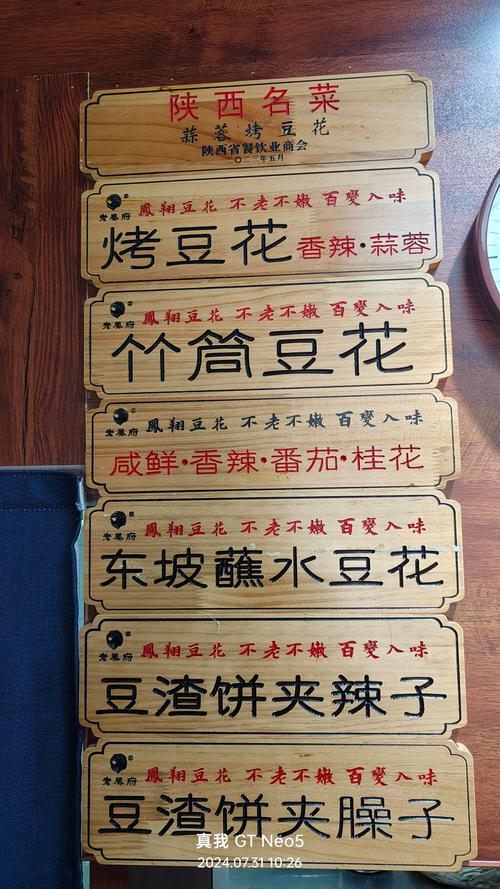 陕西名菜
蒜蓉烤豆花
陕西省餐饮业商会
二〇二三年五月
老鳳府®
鳳翔豆花 不老不嫩 百變入味
烤豆花 香辣·蒜蓉
老鳳府®
鳳翔豆花 不老不嫩 百變入味
竹筒豆花
老鳳府®
鳳翔豆花 不老不嫩 百變入味
咸鲜·香辣·番茄·桂花
老鳳府®
鳳翔豆花 不老不嫩 百變入味
东坡蘸水豆花
老鳳府®
鳳翔豆花 不老不嫩 百變入味
豆渣饼夹辣子
老鳳府®
鳳翔豆花 不老不嫩 百變入味
豆渣饼夹臊子
真我 GT Neo5
2024.07.31 10:26